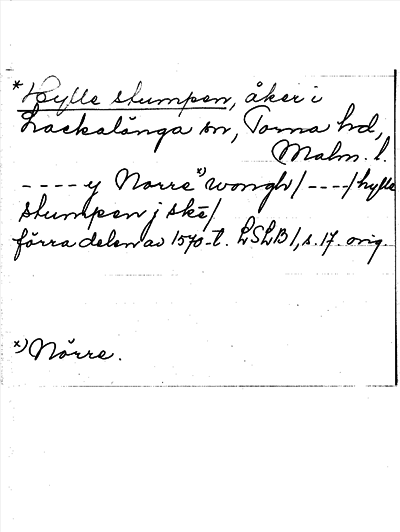 *Hylle stumpen, åker i
Lackalänga sn, Torna hd,
Malm. l.
---- y Norre x) wongh/ ----/hylle
stumpen j skē/
förra delen av 1570-t. LSLB1, s. 17. orig.
x) Nörre.